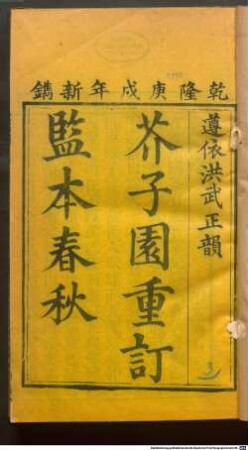 乾隆庚戌年新鐫
遵依洪武正韻
芥子園重訂
監本春秋